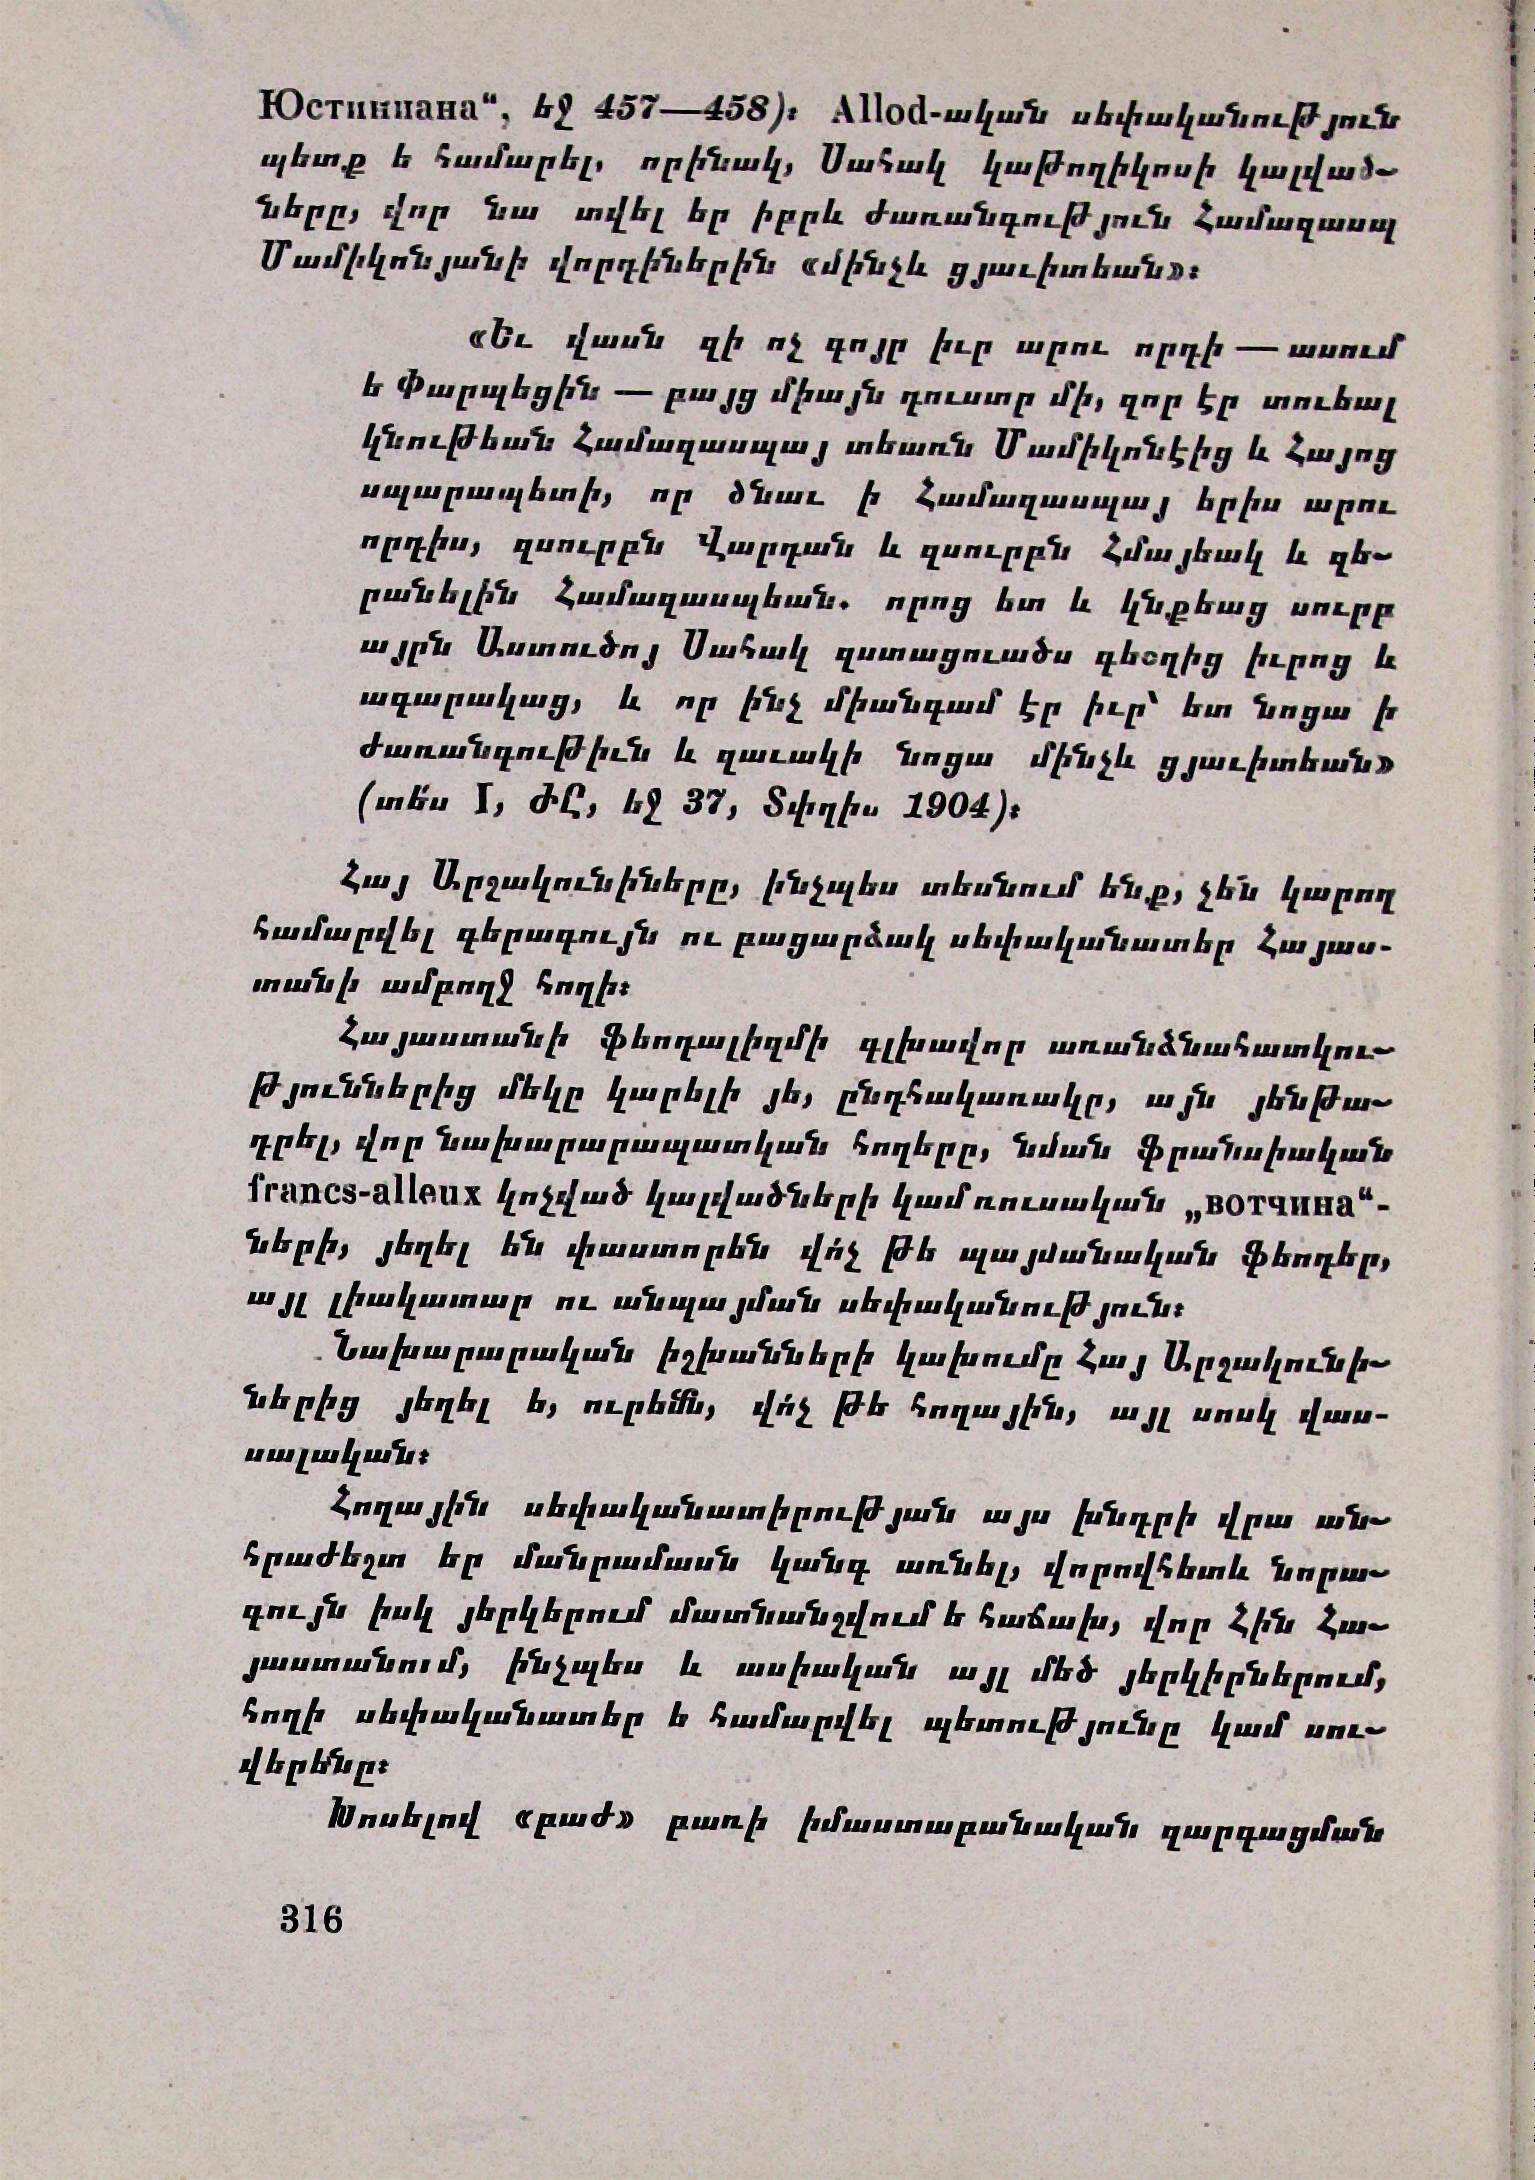 Юстиниана“, եջ 457—458)։ Allod-ական սեփականություն
պետք ե համարել, որինակ, Սահակ կաթողիկոսի կալված-
ները, վոր նա տվել եր իբրև ժառանգություն Համազասպ
Մամիկոնյանի վորդիներին «մինչև ցյաւիտեան»։
«Եւ վասն զի ոչ գոյր իւր արու որդի — ասում
ե Փարպեցին — բայց միայն դուստր մի, զոր էր տուեալ
կնութեան Համազասպայ տեառն Մամիկոնէից և Հայոց
սպարապետի, որ ծնաւ ի Համազասպայ երիս արու
որդիս, զսուրբն Վարդան և զսուրբն Հմայեակ և զե-
րանելին Համազասպեան. որոց ետ և կնքեաց սուրբ
այրն Աստուծոյ Սահակ զստացուածս գեօղից իւրոց և
ագարակաց, և որ ինչ միանգամ էր իւր՝ ետ նոցա ի
ժառանգութիւն և զաւակի նոցա մինչև ցյաւիտեան»
(տե՛ս I, ԺԸ, եջ 37, Տփղիս 1904)։
Հայ Արշակունիները, ինչպես տեսնում ենք, չե՛ն կարող
համարվել գերագույն ու բացարձակ սեփականատեր Հայաս-
տանի ամբողջ հողի։
Հայաստանի ֆեոդալիզմի գլխավոր առանձնահատկու-
թյուններից մեկը կարելի յե, ընդհակառակը, այն յենթա-
դրել, վոր նախարարապատկան հողերը, նման ֆրանսիական
francs-alleux կոչված կալվածների կամ ռուսական „вотчина“-
ների, յեղել են փաստորեն վո՛չ թե պայմանական ֆեոդեր,
այլ լիակատար ու անպայման սեփականություն։
Նախարարական իշխանների կախումը Հայ Արշակունի-
ներից յեղել ե, ուրեմն, վո՛չ թե հողային, այլ սոսկ վաս-
սալական։
Հողային սեփականատիրության այս խնդրի վրա ան-
հրաժեշտ եր մանրամասն կանգ առնել, վորովհետև նորա-
գույն իսկ յերկերում մատնանշվում ե հաճախ, վոր Հին Հա-
յաստանում, ինչպես և ասիական այլ մեծ յերկիրներում,
հողի սեփականատեր ե համարվել պետությունը կամ սու-
վերենը։
Խոսելով «բաժ» բառի իմաստաբանական զարգացման
316